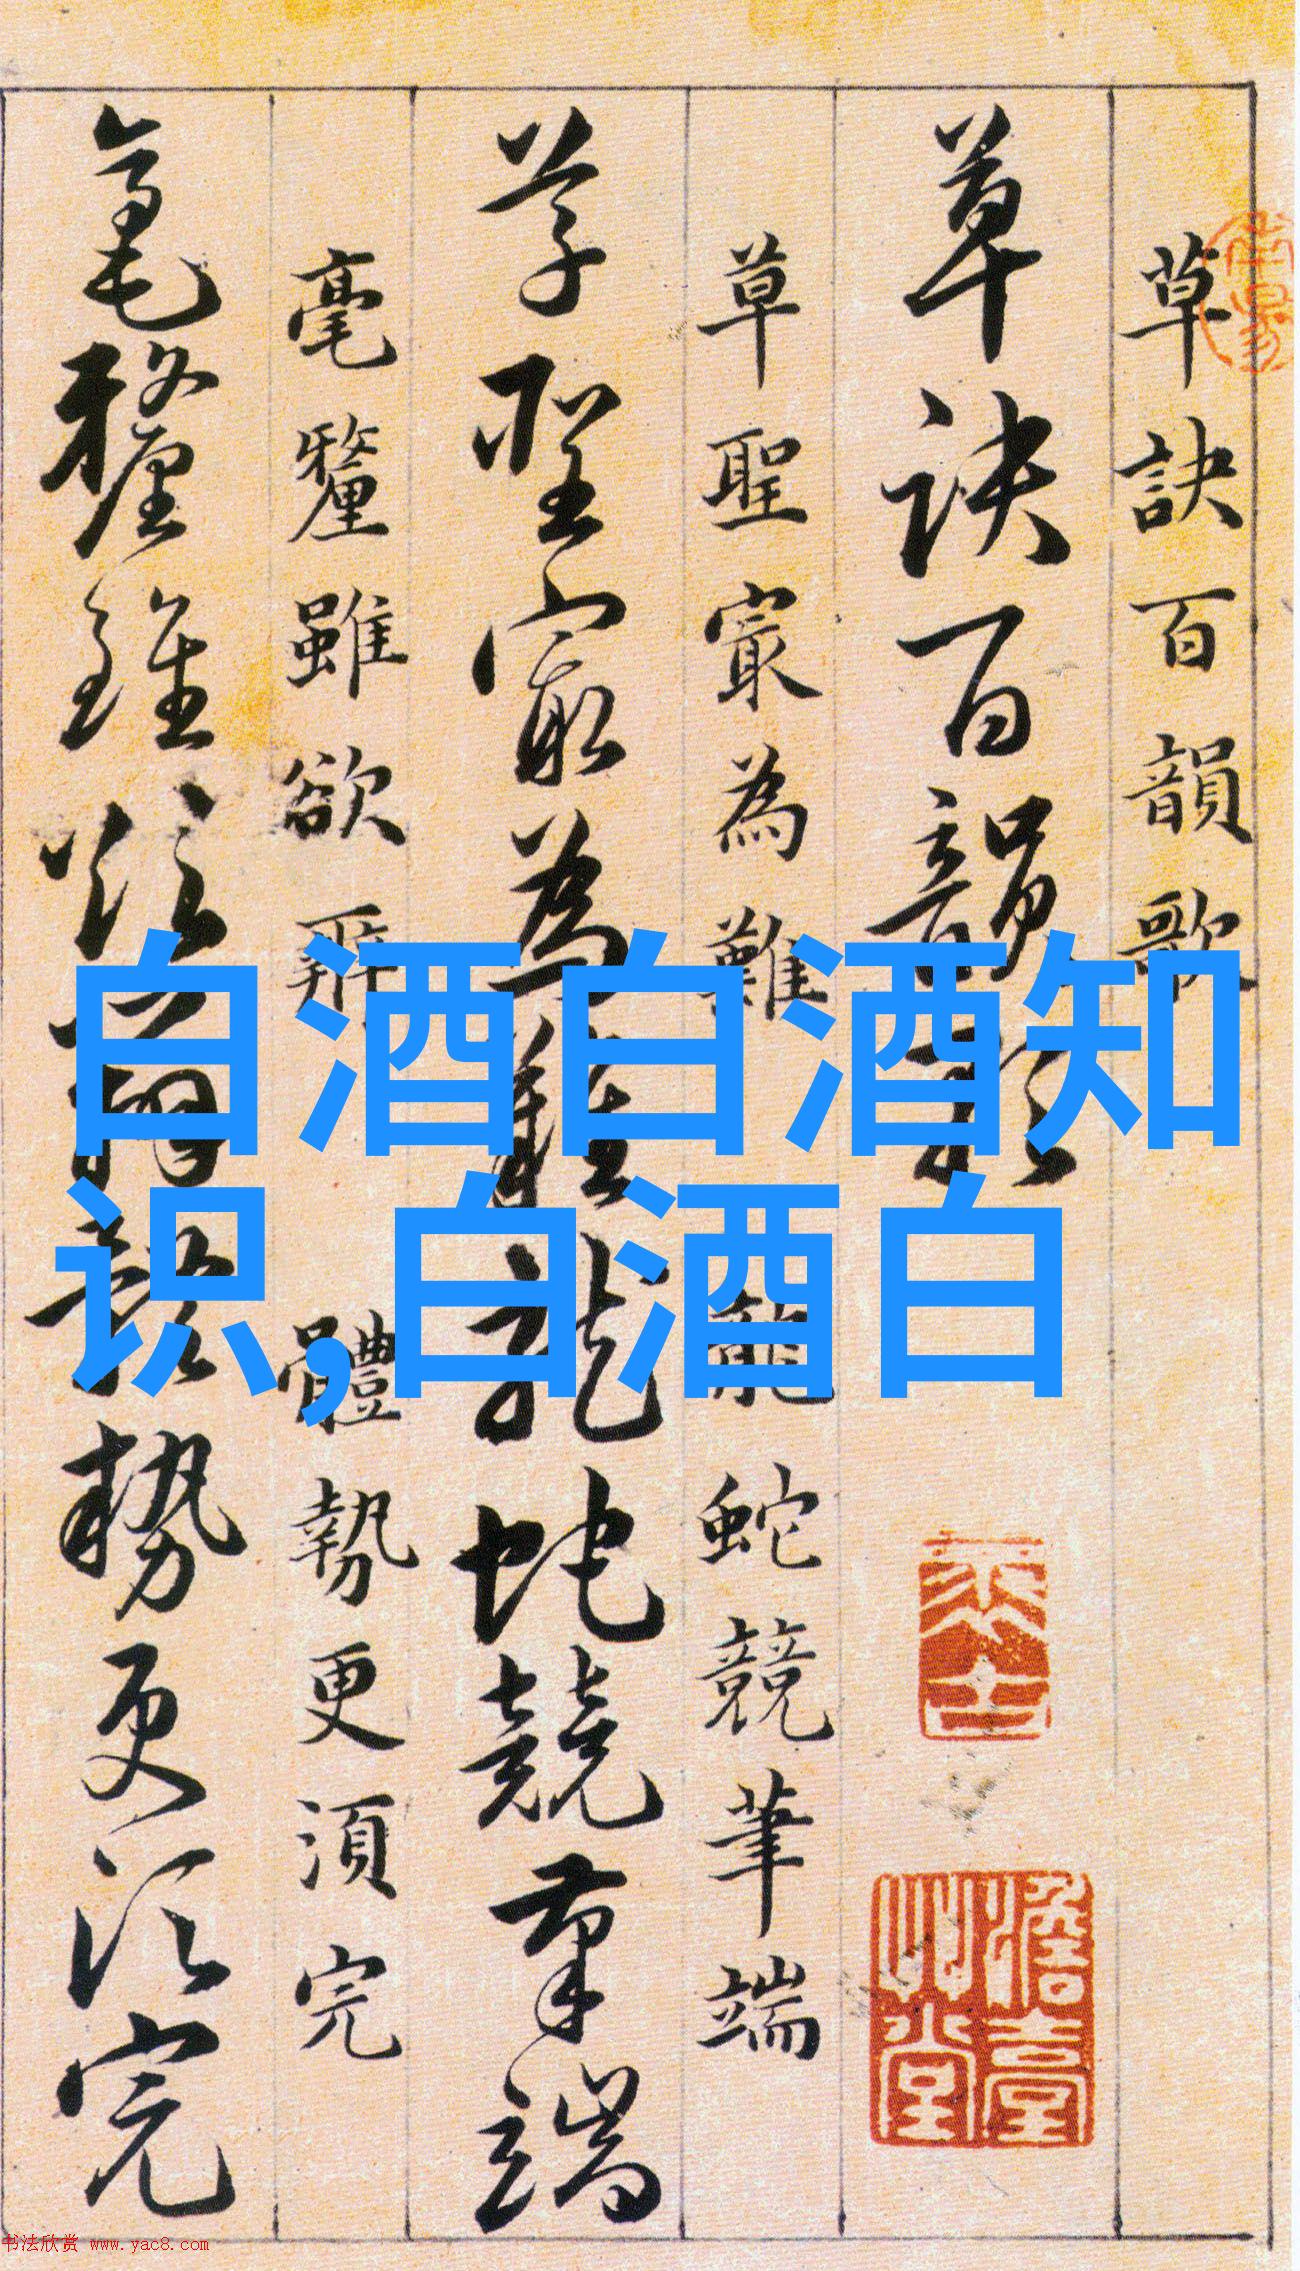 草訣百韻歌
草訣百韻歌
草聖寂為難 龍蛇競筆端
草聖寂為難龍蛇競筆端
毫釐雖欲辨 體勢更須完
毫釐雖欲辨體勢更須完
白酒白酒知
识,白酒白
書法欣赏 www.yac8.com